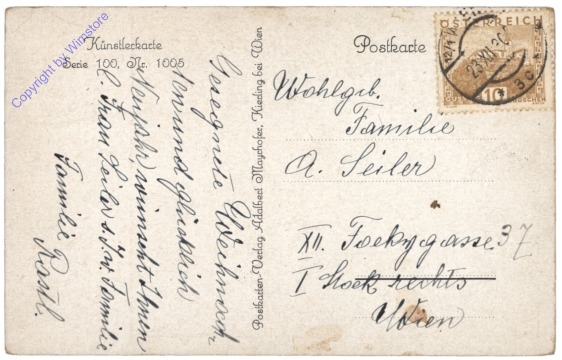 Copyright by Wimstore
Künstlerkarte
Serie 100, Nr. 1005
Gesegnete Weihnach-
ten und glücklich
Neujahr, wünscht Ihnen
Frau Seiler s. I. w. Familie
Familie Rastl.
Postkarten-Verlag Adalbert Mayrhofer, Kierling bei Wien
Postkarte
ÖSTERREICH
23 XII 30
3c
10 GROSCHEN
Wohlgeb.
Familie
A. Seiler
XII. Fockygasse 37
I Stock rechts
Wien